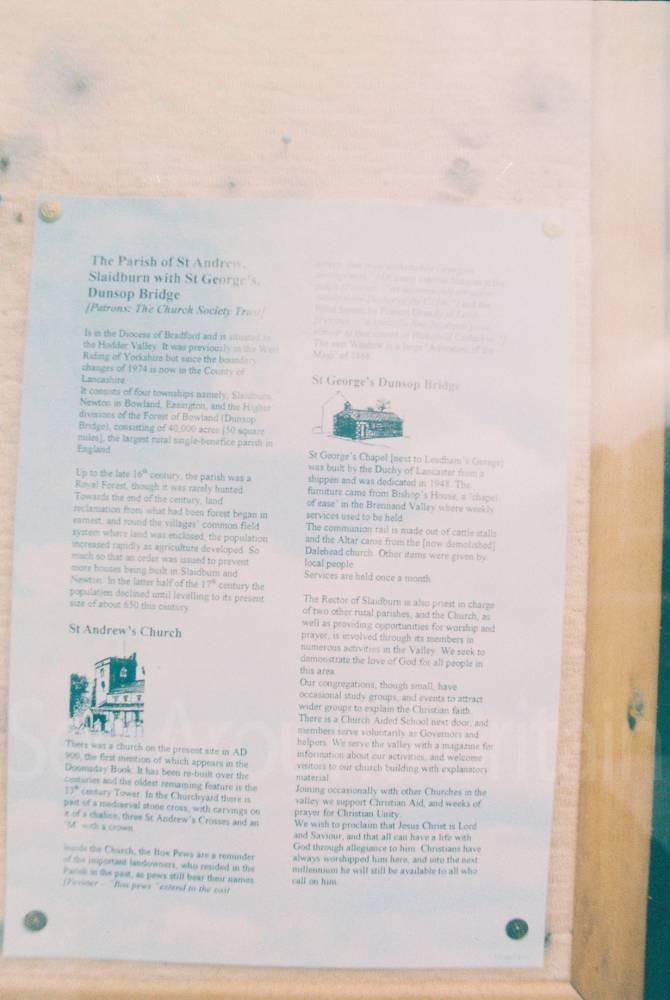 The Parish of St Andrew,
Slaidburn with St George's,
Dunsop Bridge
[Patrons: The Church Society Trust]
Is in the Diocese of Bradford and is situated in
the Hodder Valley. It was previously in the West
Riding of Yorkshire but since the boundary
changes of 1974 is now in the County of
Lancashire.
It consists of four townships namely, Slaidburn,
Newton in Bowland, Easington, and the Higher
divisions of the Forest of Bowland (Dunsop
Bridge), consisting of 40,000 acres [50 square
miles], the largest rural single-benefice parish in
England.
Up to the late 16th century, the parish was a
Royal Forest, though it was rarely hunted.
Towards the end of the century, land
reclamation from what had been forest began in
earnest, and round the villages' common field
system where land was enclosed, the population
increased rapidly as agriculture developed. So
much so that an order was issued to prevent
more houses being built in Slaidburn and
Newton. In the latter half of the 17th century the
population declined until levelling to its present
size of about 650 this century.
St Andrew's Church
There was a church on the present site in AD
900, the first mention of which appears in the
Doomsday Book. It has been re-built over the
centuries and the oldest remaining feature is the
13th century Tower. In the Churchyard there is
part of a mediaeval stone cross, with carvings on
it of a chalice, three St Andrew's Crosses and an
'M' with a crown.
Inside the Church, the Box Pews are a reminder
of the important landowners, who resided in the
Parish in the past, as pews still bear their names.
[Pevsner – "Box pews" extend to the east
The east Window is a large 'Adoration of the
Magi' of
St George's Dunsop Bridge
St George's Chapel [next to Leedham's Garage]
was built by the Duchy of Lancaster from a
shippen and was dedicated in 1948. The
furniture came from Bishop's House, a 'chapel
of ease' in the Brennand Valley where weekly
services used to be held.
The communion rail is made out of cattle stalls
and the Altar came from the [now demolished]
Dalehead church. Other items were given by
local people.
Services are held once a month.
The Rector of Slaidburn is also priest in charge
of two other rural parishes, and the Church, as
well as providing opportunities for worship and
prayer, is involved through its members in
numerous activities in the Valley. We seek to
demonstrate the love of God for all people in
this area.
Our congregations, though small, have
occasional study groups, and events to attract
wider groups to explain the Christian faith.
There is a Church Aided School next door, and
members serve voluntarily as Governors and
helpers. We serve the valley with a magazine for
information about our activities, and welcome
visitors to our church building with explanatory
material.
Joining occasionally with other Churches in the
valley we support Christian Aid, and weeks of
prayer for Christian Unity.
We wish to proclaim that Jesus Christ is Lord
and Saviour, and that all can have a life with
God through allegiance to him. Christians have
always worshipped him here, and into the next
millennium he will still be available to all who
call on him.